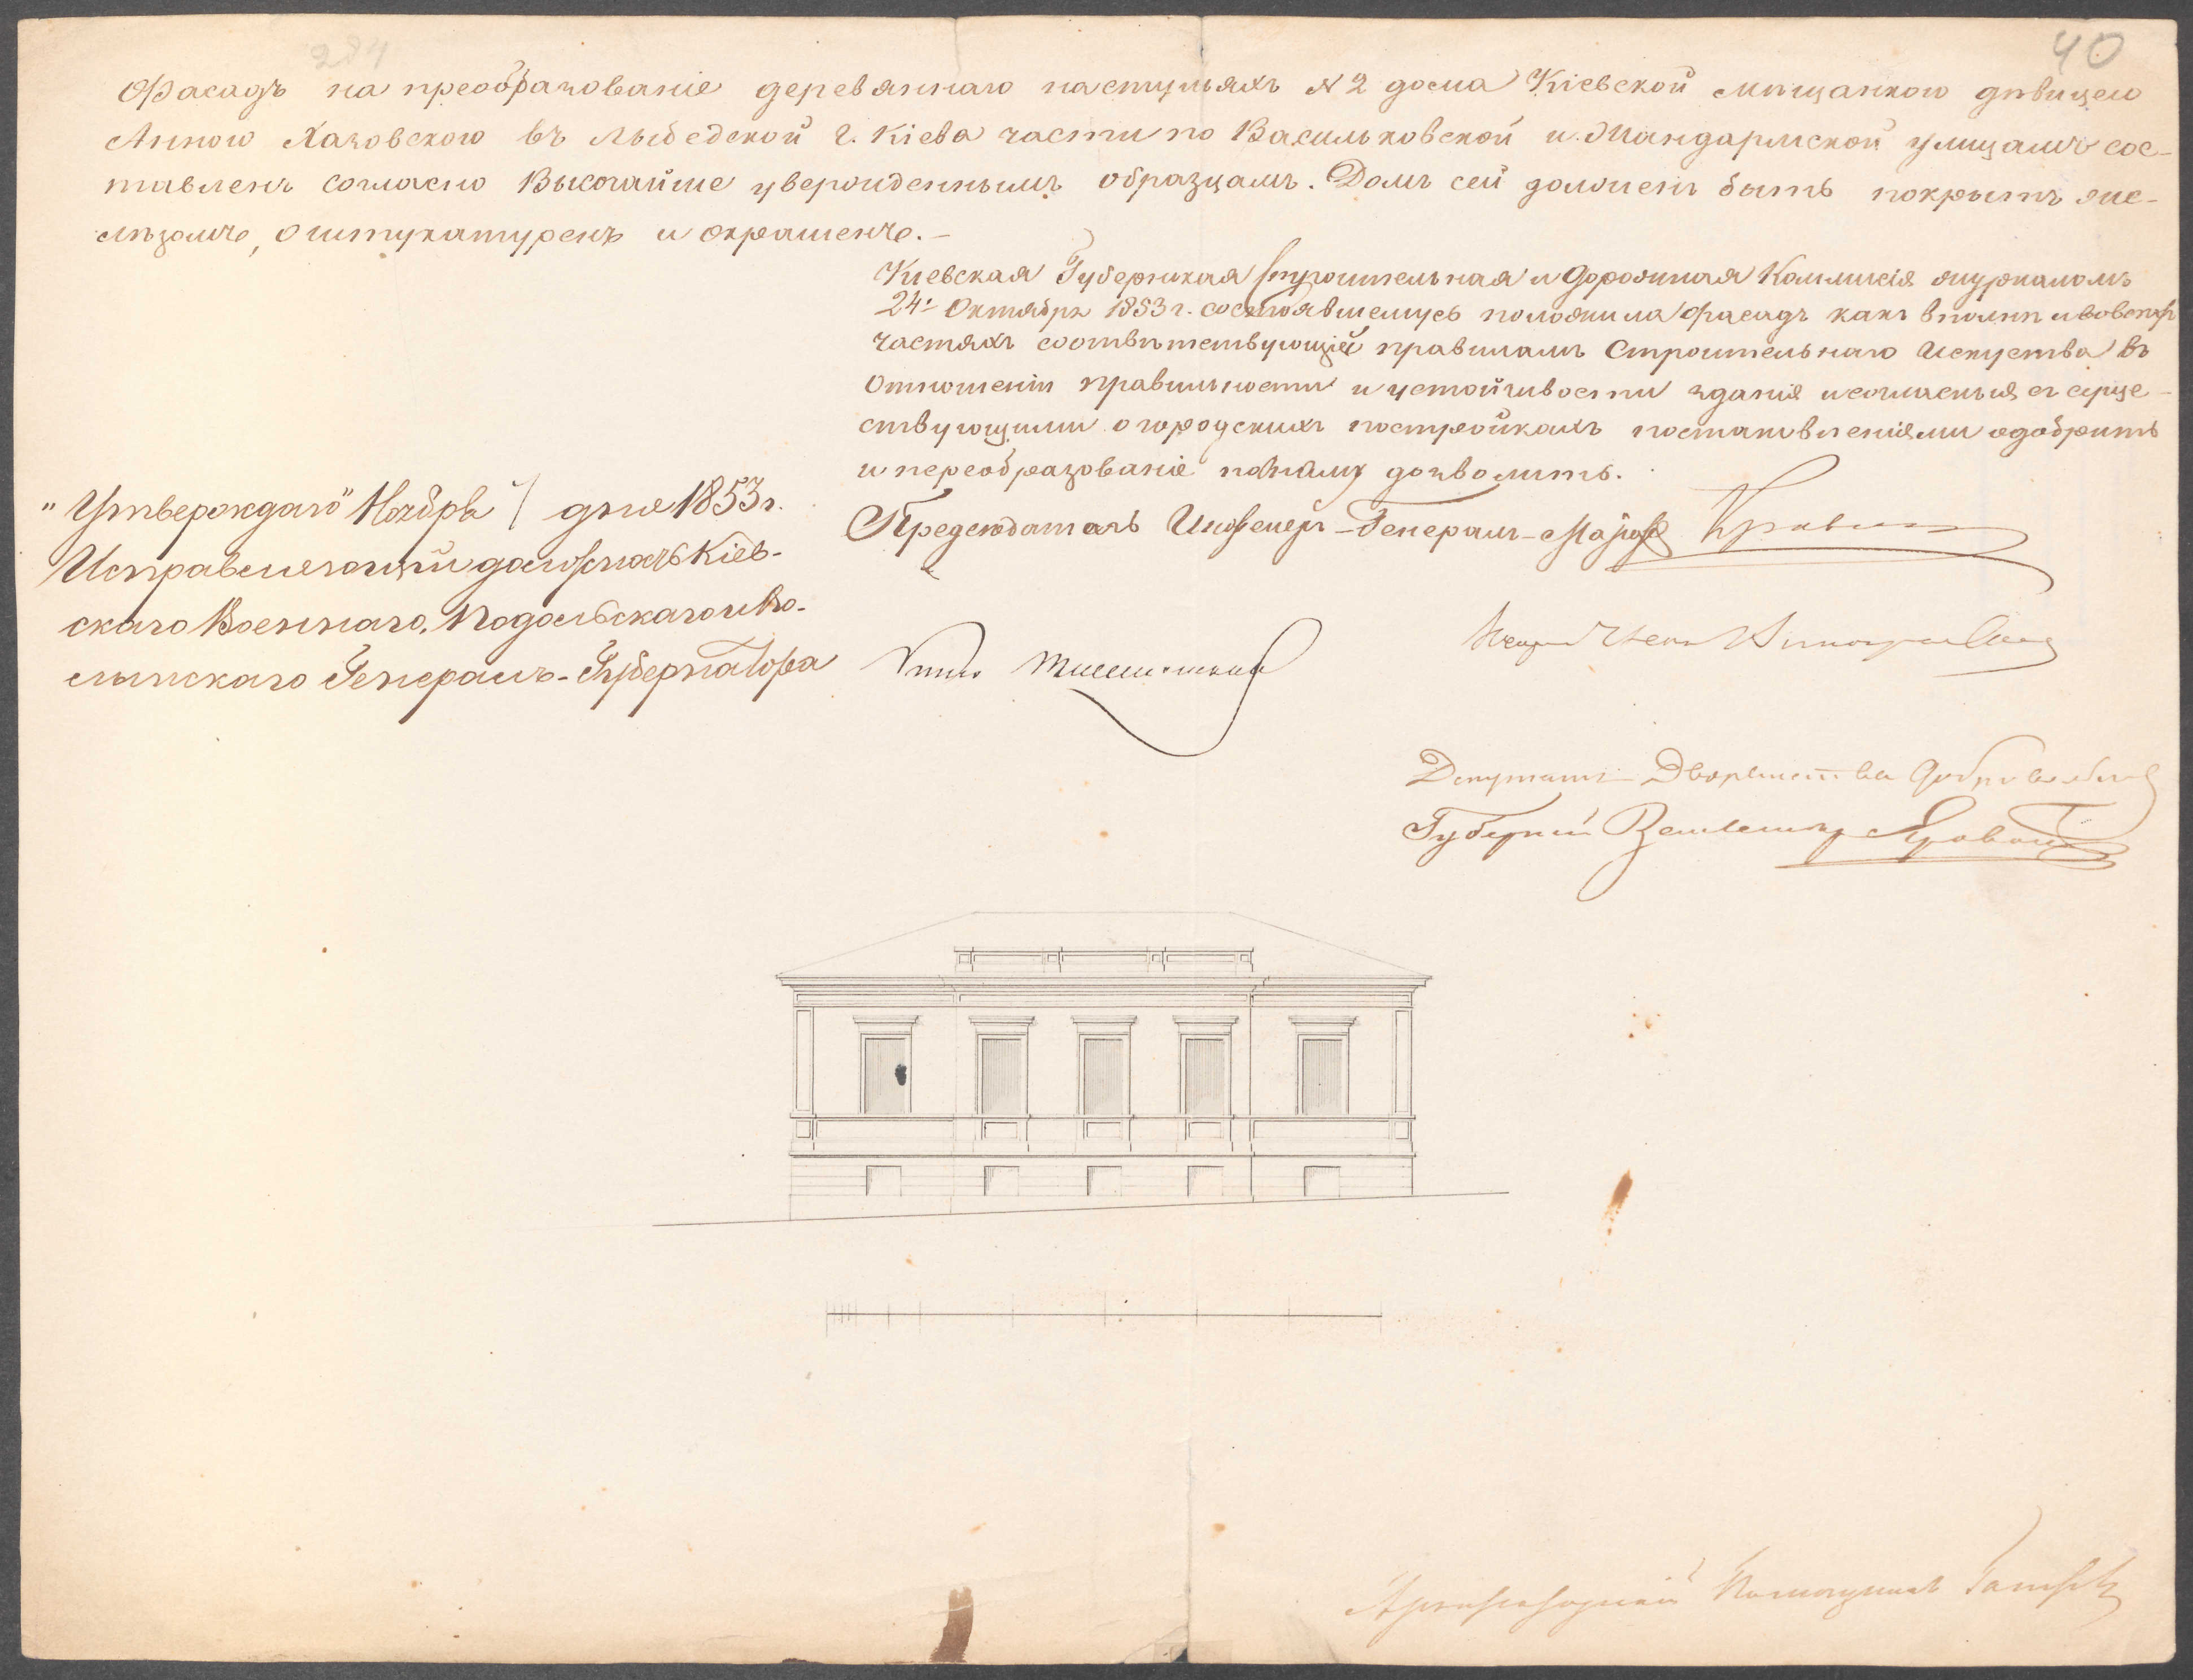 284
40
Фасадъ на преобразованіе деревяннаго на стульяхъ N 2 дома Кіевской мѣщанкою дѣвицею
Анною Хазовскою въ Лыбедской г. Кіева части по Васильковской и Жандармской улицамъ сос-
тавленъ согласно Высочайше увержденнымъ образцамъ. Домъ сей долженъ быть покрытъ же-
лѣзомъ, оштукатуренъ и окрашенъ.-
Кіевская Губернская Строительная и Дорожная Коммисія журналомъ
24 Октября 1853 г. состоявшемусь положила фасадъ какъ вполнѣ и во всѣхъ
частяхъ соотвѣтствующій правиламъ Строительнаго Искуства въ
отношеніи правильности и устойчивости зданія и согласный съ суще-
ствующими о городскихъ постройкахъ постановленіями одобрить
и переобразованіе по нему дозволить.
"Утверждаю" Ноября 1 дня 1853 г.
Исправляющій должность Кіев-
скаго Военнаго, Подольскаго и Во-
лынскаго Генералъ-Губернатора
Предсѣдатель Инженеръ-Генералъ-Маіоръ
Депутатъ Дворянства
Губернскій Землемѣръ Яровой
Архитекторскій Помощникъ